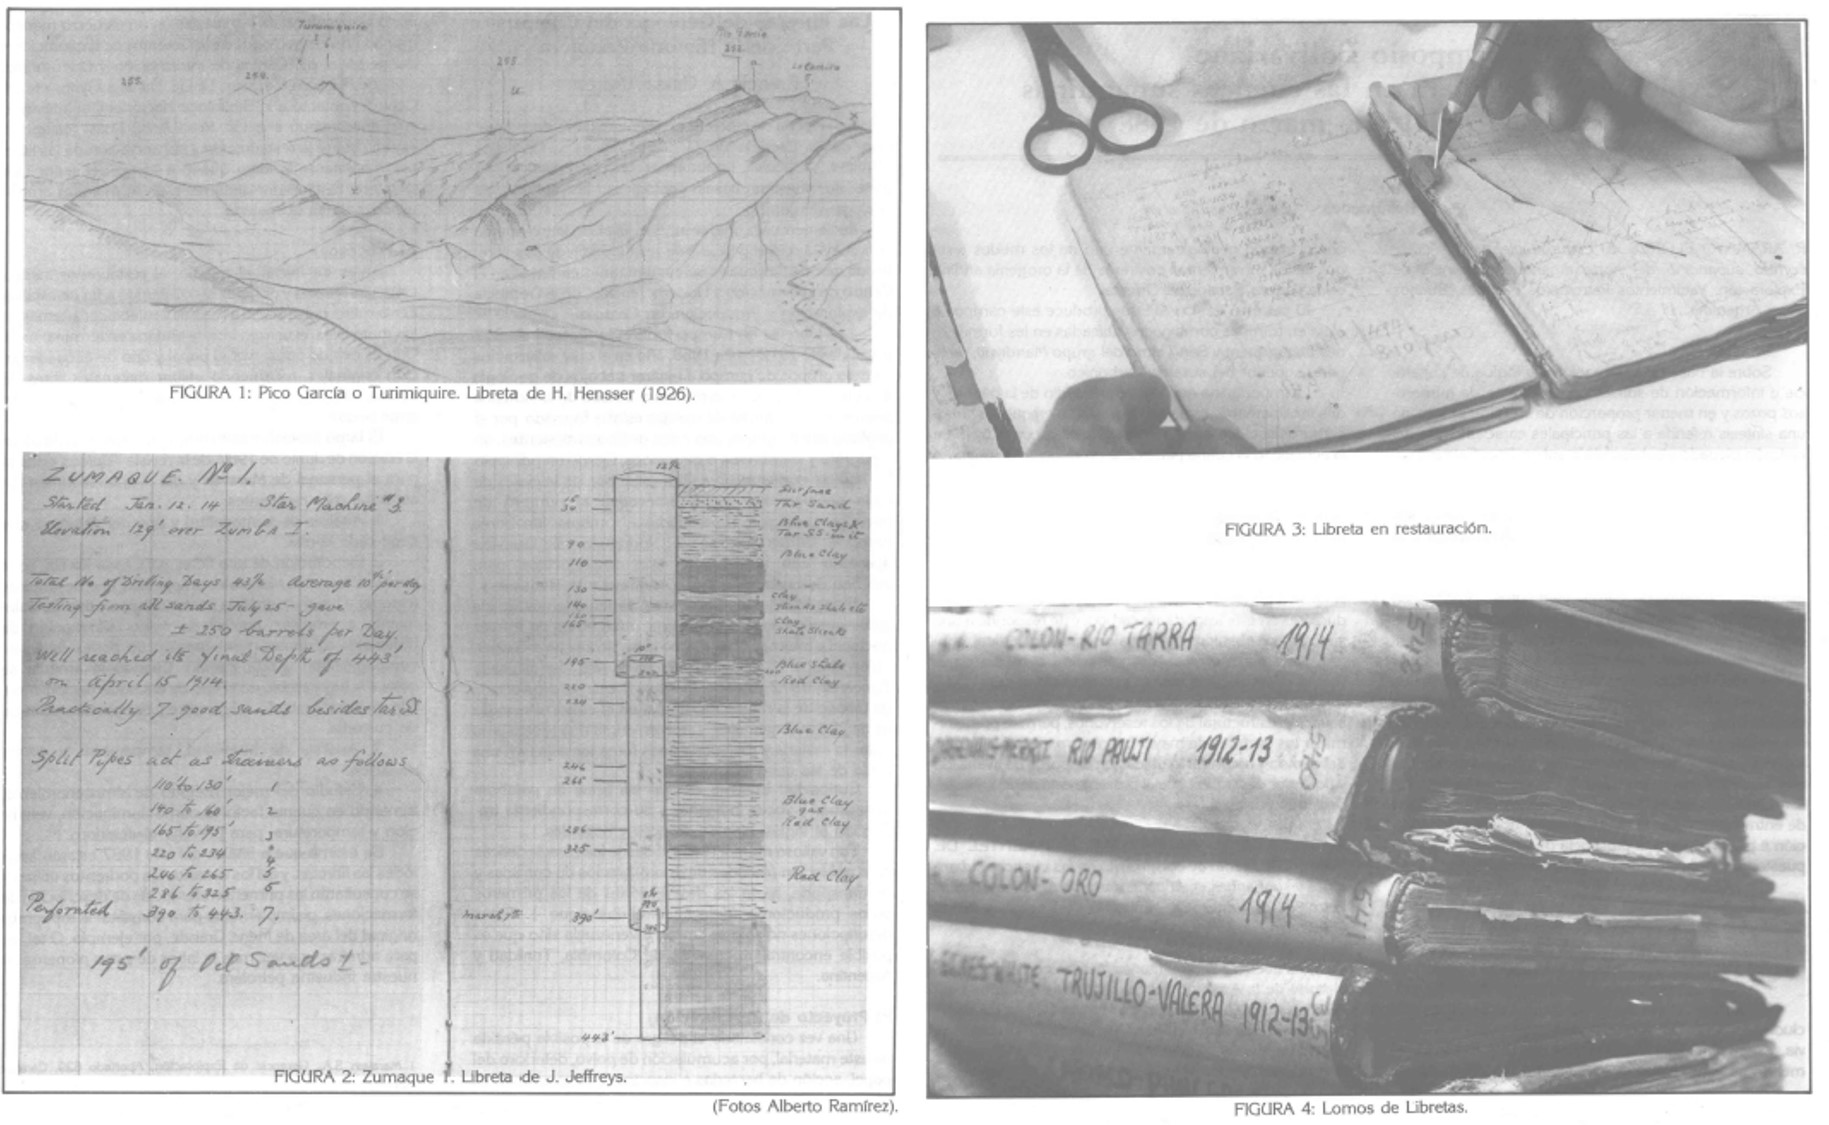 Turumiquire
Pico García
255.
254.
253
252
FIGURA 1: Pico García o Turimiquire. Libreta de H. Hensser (1926).
ZUMAQUE. Nº 1.
Started Jan. 12. 14 Star Machine #3
Elevation 129' over Zumba I.
Total No of Drilling Days 43½ Average 10' per day
Testing from all sands July 25 - gave
± 250 barrels per Day.
Well reached its final Depth of 443'
on April 15 1914.
Practically 7 good sands besides Tar Sd.
Split Pipes act as strainers as follows
110' to 130' 1
140 to 160' 2
165 to 195' 3
220 to 234 4
246 to 265 5
286 to 325 6
Perforated 390 to 443. 7.
195' of Oil Sands ±.
15 Surface
30 Tar Sand
Blue Clay &
90 Tar SS. in it
Blue Clay
110
130 Clay
140
Clay
165
195 Blue Shale
Red Clay
220
234
Blue Clay
246
265
Blue Clay
gas
286 Red Clay
325
Red Clay
390'
443'
FIGURA 2: Zumaque 1. Libreta de J. Jeffreys.
(Fotos Alberto Ramírez).
FIGURA 3: Libreta en restauración.
COLON-RIO TARRA 1914 542
RIO PAUJI 1912-13 540
COLON-ORO 1914 541
TRUJILLO-VALERA 1912-13
FIGURA 4: Lomos de Libretas.